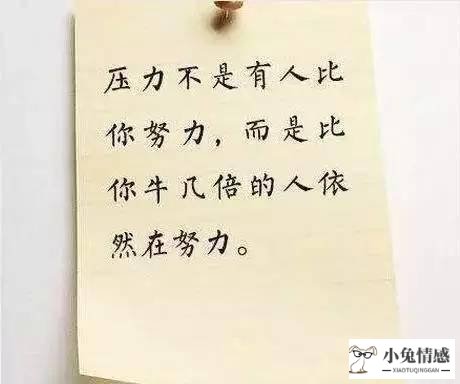 压力不是有人比
你努力，而是比
你牛几倍的人依
然在努力。
小兔情感
XIAOTUQINGGAN